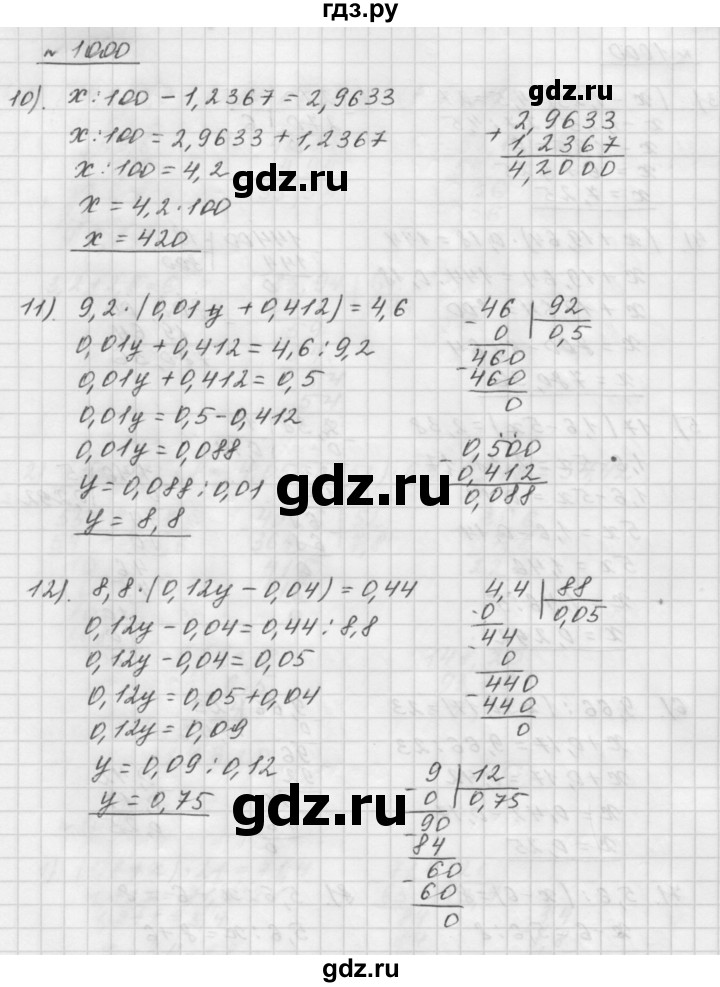 гдз.ру
№ 1000
10). x:100 − 1,2367 = 2,9633
x:100 = 2,9633 + 1,2367
x:100 = 4,2
x = 4,2·100
x = 420
gdz.ru
+ 2,9633
1,2367
4,2000
gdz.ru
11). 9,2·(0,01y + 0,412) = 4,6
0,01y + 0,412 = 4,6:9,2
0,01y + 0,412 = 0,5
0,01y = 0,5 − 0,412
0,01y = 0,088
y = 0,088:0,01
y = 8,8
− 46 | 92
0 | 0,5
− 460
460
0
− 0,500
0,412
0,088
gdz.ru
12). 8,8·(0,12y − 0,04) = 0,44
0,12y − 0,04 = 0,44:8,8
0,12y − 0,04 = 0,05
0,12y = 0,05 + 0,04
0,12y = 0,09
y = 0,09:0,12
y = 0,75
4,4 | 88
0 | 0,05
− 44
0
− 440
440
0
gdz.ru
− 9 | 12
0 | 0,75
− 90
84
− 60
60
0
gdz.ru